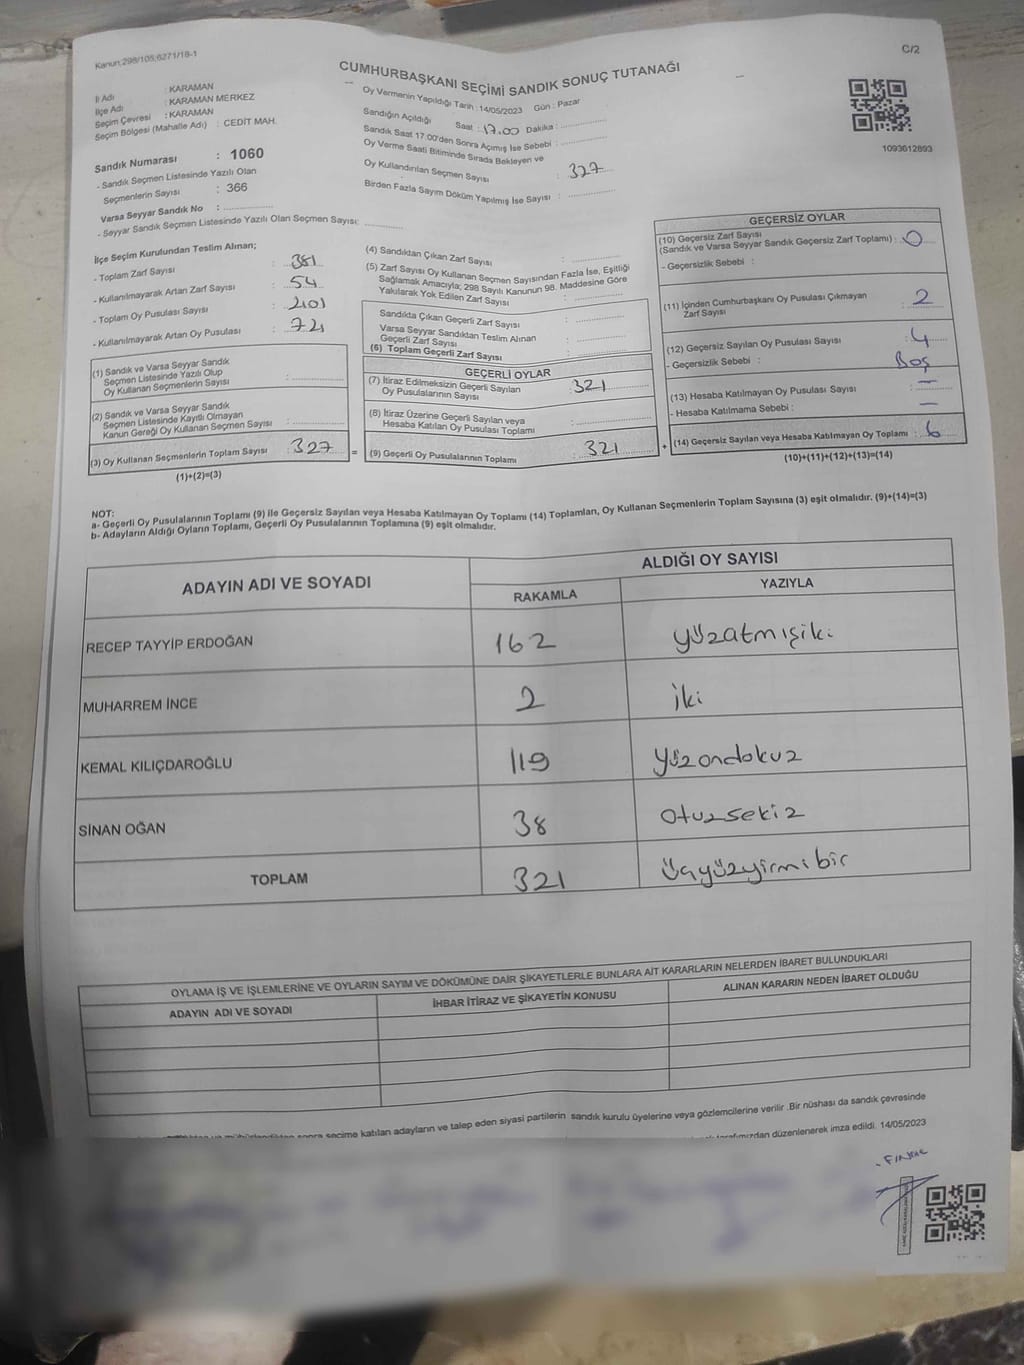 Kanun:298/105;6271/18-1
C/2
CUMHURBAŞKANI SEÇİMİ SANDIK SONUÇ TUTANAĞI
İl Adı : KARAMAN
İlçe Adı : KARAMAN MERKEZ
Seçim Çevresi : KARAMAN
Seçim Bölgesi (Mahalle Adı) : CEDİT MAH.
Sandık Numarası : 1060
- Sandık Seçmen Listesinde Yazılı Olan
Seçmenlerin Sayısı : 366
Varsa Seyyar Sandık No :
- Seyyar Sandık Seçmen Listesinde Yazılı Olan Seçmen Sayısı:
Oy Vermenin Yapıldığı Tarih : 14/05/2023 Gün : Pazar
Sandığın Açıldığı Saat : 17.00 Dakika :
Sandık Saat 17.00'den Sonra Açılmış İse Sebebi :
Oy Verme Saati Bitiminde Sırada Bekleyen ve
Oy Kullandırılan Seçmen Sayısı : 327
Birden Fazla Sayım Döküm Yapılmış İse Sayısı :
1093612893
İlçe Seçim Kurulundan Teslim Alınan;
- Toplam Zarf Sayısı : 381
- Kullanılmayarak Artan Zarf Sayısı : 54
- Toplam Oy Pusulası Sayısı :
- Kullanılmayarak Artan Oy Pusulası :
(1) Sandık ve Varsa Seyyar Sandık
Seçmen Listesinde Yazılı Olup
Oy Kullanan Seçmenlerin Sayısı :
(2) Sandık ve Varsa Seyyar Sandık
Seçmen Listesinde Kayıtlı Olmayan
Kanun Gereği Oy Kullanan Seçmen Sayısı :
(3) Oy Kullanan Seçmenlerin Toplam Sayısı : 327
(1)+(2)=(3)
(4) Sandıktan Çıkan Zarf Sayısı :
(5) Zarf Sayısı Oy Kullanan Seçmen Sayısından Fazla İse, Eşitliği
Sağlamak Amacıyla; 298 Sayılı Kanunun 98. Maddesine Göre
Yakılarak Yok Edilen Zarf Sayısı :
Sandıkta Çıkan Geçerli Zarf Sayısı :
Varsa Seyyar Sandıktan Teslim Alınan
Geçerli Zarf Sayısı :
(6) Toplam Geçerli Zarf Sayısı :
GEÇERLİ OYLAR
(7) İtiraz Edilmeksizin Geçerli Sayılan
Oy Pusulalarının Sayısı : 321
(8) İtiraz Üzerine Geçerli Sayılan veya
Hesaba Katılan Oy Pusulası Toplamı :
= (9) Geçerli Oy Pusulalarının Toplamı : 321 +
GEÇERSİZ OYLAR
(10) Geçersiz Zarf Sayısı
(Sandık ve Varsa Seyyar Sandık Geçersiz Zarf Toplamı) : 0
- Geçersizlik Sebebi :
(11) İçinden Cumhurbaşkanı Oy Pusulası Çıkmayan
Zarf Sayısı : 2
(12) Geçersiz Sayılan Oy Pusulası Sayısı : 4
- Geçersizlik Sebebi : Boş
(13) Hesaba Katılmayan Oy Pusulası Sayısı : —
- Hesaba Katılmama Sebebi : —
(14) Geçersiz Sayılan veya Hesaba Katılmayan Oy Toplamı : 6
(10)+(11)+(12)+(13)=(14)
NOT:
a- Geçerli Oy Pusulalarının Toplamı (9) ile Geçersiz Sayılan veya Hesaba Katılmayan Oy Toplamı (14) Toplamları, Oy Kullanan Seçmenlerin Toplam Sayısına (3) eşit olmalıdır. (9)+(14)=(3)
b- Adayların Aldığı Oyların Toplamı, Geçerli Oy Pusulalarının Toplamına (9) eşit olmalıdır.
ADAYIN ADI VE SOYADI ALDIĞI OY SAYISI
RAKAMLA YAZIYLA
RECEP TAYYİP ERDOĞAN 162 yüzatmışiki
MUHARREM İNCE 2 iki
KEMAL KILIÇDAROĞLU 119 yüzondokuz
SİNAN OĞAN 38 otuzsekiz
TOPLAM 321 üçyüzyirmibir
OYLAMA İŞ VE İŞLEMLERİNE VE OYLARIN SAYIM VE DÖKÜMÜNE DAİR ŞİKAYETLERLE BUNLARA AİT KARARLARIN NELERDEN İBARET BULUNDUKLARI
ADAYIN ADI VE SOYADI İHBAR İTİRAZ VE ŞİKAYETİN KONUSU ALINAN KARARIN NEDEN İBARET OLDUĞU
sonra seçime katılan adayların ve talep eden siyasi partilerin sandık kurulu üyelerine veya gözlemcilerine verilir .Bir nüshası da sandık çevresinde
tarafımızdan düzenlenerek imza edildi. 14/05/2023